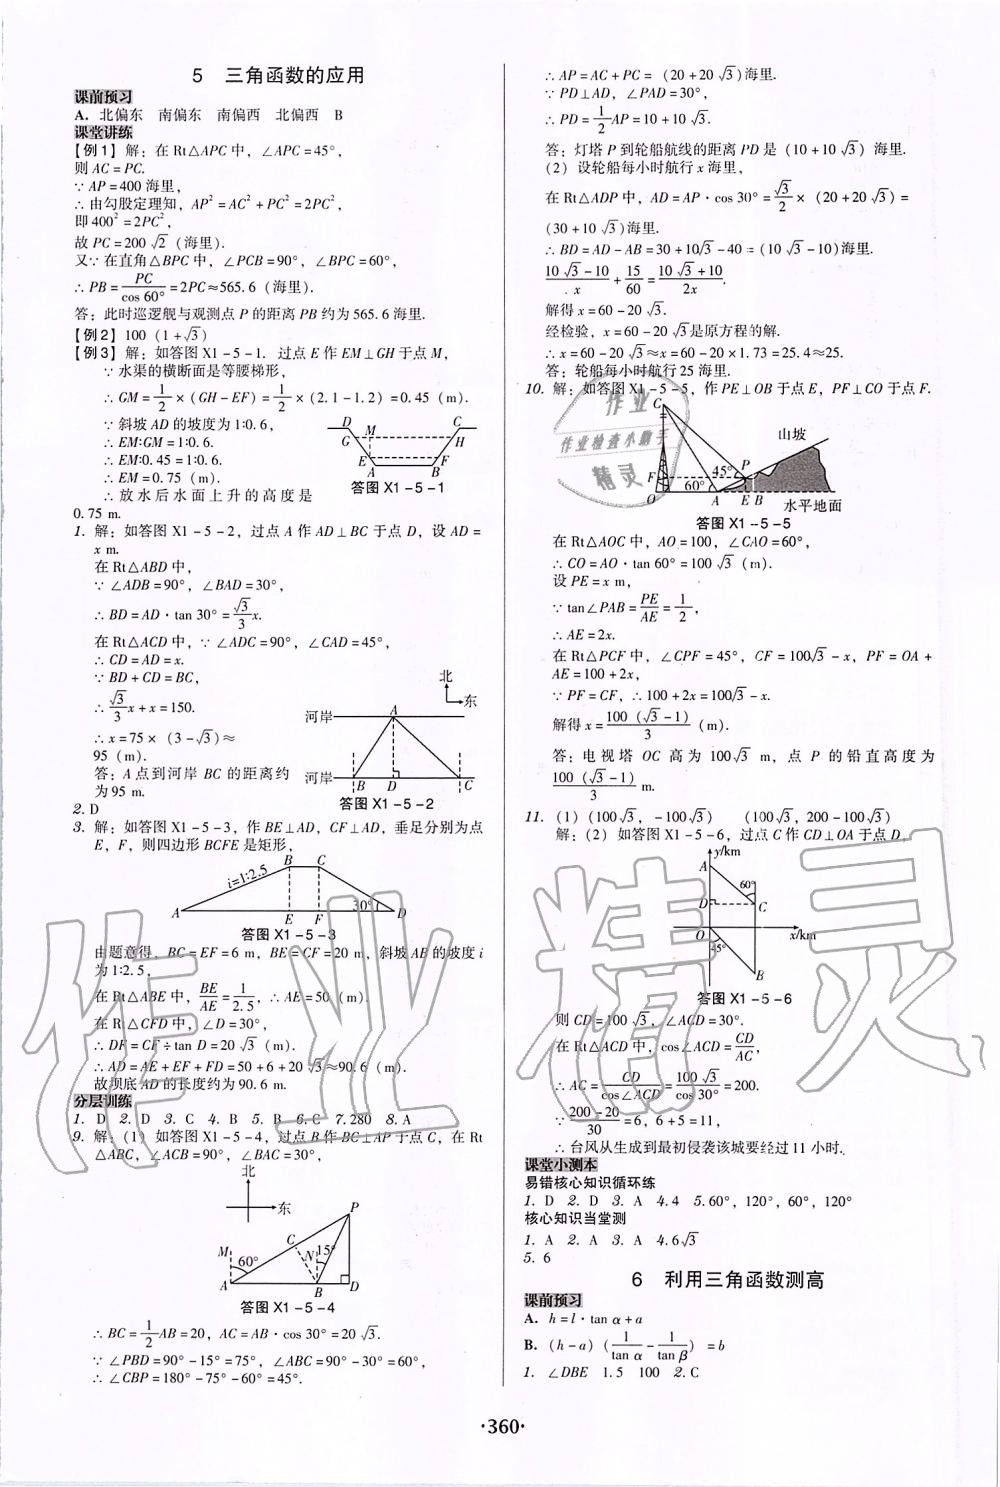 5 三角函数的应用
课前预习
A. 北偏东 南偏东 南偏西 北偏西 B
课堂讲练
【例1】解：在 Rt△APC 中，∠APC=45°，
则 AC=PC.
∵AP=400 海里，
∴由勾股定理知，AP²=AC²+PC²=2PC²，
即 400²=2PC²，
故 PC=200√2（海里）.
又∵在直角△BPC 中，∠PCB=90°，∠BPC=60°，
∴PB=PC/cos 60°=2PC≈565.6（海里）.
答：此时巡逻舰与观测点 P 的距离 PB 约为 565.6 海里.
【例2】100（1+√3）
【例3】解：如答图 X1-5-1. 过点 E 作 EM⊥GH 于点 M，
∵水渠的横断面是等腰梯形，
∴GM=1/2×（GH-EF）=1/2×（2.1-1.2）=0.45（m）.
∵斜坡 AD 的坡度为 1∶0.6，
∴EM∶GM=1∶0.6.
∴EM∶0.45=1∶0.6.
∴EM=0.75（m）.
∴放水后水面上升的高度是
0.75 m.
D M C
G H
E F
A B
答图 X1-5-1
1. 解：如答图 X1-5-2，过点 A 作 AD⊥BC 于点 D，设 AD=
x m.
在 Rt△ABD 中，
∵∠ADB=90°，∠BAD=30°，
∴BD=AD·tan 30°=√3/3 x.
在 Rt△ACD 中，∵∠ADC=90°，∠CAD=45°，
∴CD=AD=x.
∵BD+CD=BC，
∴√3/3 x+x=150.
∴x=75×（3-√3）≈
95（m）.
答：A 点到河岸 BC 的距离约
为 95 m.
北
东
河岸 A
河岸 B D C
答图 X1-5-2
2. D
3. 解：如答图 X1-5-3，作 BE⊥AD，CF⊥AD，垂足分别为点
E，F，则四边形 BCFE 是矩形，
B C
i=1∶2.5
30°
A E F D
答图 X1-5-3
由题意得，BC=EF=6 m，BE=CF=20 m，斜坡 AB 的坡度 i
为 1∶2.5，
在 Rt△ABE 中，BE/AE=1/2.5，∴AE=50（m）.
在 Rt△CFD 中，∠D=30°，
∴DF=CF÷tan D=20√3（m）.
∴AD=AE+EF+FD=50+6+20√3≈90.6（m）.
故坝底 AD 的长度约为 90.6 m.
分层训练
1. D 2. D 3. C 4. B 5. B 6. C 7.280 8. A
9. 解：（1）如答图 X1-5-4，过点 B 作 BC⊥AP 于点 C，在 Rt
△ABC，∠ACB=90°，∠BAC=30°，
北
东
P
C
M N 15°
60°
A B D
答图 X1-5-4
∴BC=1/2AB=20，AC=AB·cos 30°=20√3.
∵∠PBD=90°-15°=75°，∠ABC=90°-30°=60°，
∴∠CBP=180°-75°-60°=45°.
∴AP=AC+PC=（20+20√3）海里.
∵PD⊥AD，∠PAD=30°，
∴PD=1/2AP=10+10√3.
答：灯塔 P 到轮船航线的距离 PD 是（10+10√3）海里.
（2）设轮船每小时航行 x 海里，
在 Rt△ADP 中，AD=AP·cos 30°=√3/2×（20+20√3）=
（30+10√3）海里.
∴BD=AD-AB=30+10√3-40=（10√3-10）海里.
10√3-10/x+15/60=10√3+10/2x
解得 x=60-20√3.
经检验，x=60-20√3是原方程的解.
∴x=60-20√3≈x=60-20×1.73=25.4≈25.
答：轮船每小时航行 25 海里.
10. 解：如答图 X1-5-5，作 PE⊥OB 于点 E，PF⊥CO 于点 F.
C
山坡
P
45°
F
60°
O A E B 水平地面
答图 X1-5-5
在 Rt△AOC 中，AO=100，∠CAO=60°，
∴CO=AO·tan 60°=100√3（m）.
设 PE=x m，
∵tan∠PAB=PE/AE=1/2，
∴AE=2x.
在 Rt△PCF 中，∠CPF=45°，CF=100√3-x，PF=OA+
AE=100+2x，
∵PF=CF，∴100+2x=100√3-x.
解得 x=100（√3-1）/3（m）.
答：电视塔 OC 高为 100√3 m，点 P 的铅直高度为
100（√3-1）/3 m.
11.（1）（100√3，-100√3） （100√3，200-100√3）
解：（2）如答图 X1-5-6，过点 C 作 CD⊥OA 于点 D，
y/km
A
60°
D C
O x/km
45°
B
答图 X1-5-6
则 CD=100√3，∠ACD=30°.
在 Rt△ACD 中，cos∠ACD=CD/AC，
∴AC=CD/cos∠ACD=100√3/cos 30°=200.
∵200-20/30=6，6+5=11，
∴台风从生成到最初侵袭该城要经过 11 小时.
课堂小测本
易错核心知识循环练
1. D 2. D 3. A 4.4 5.60°，120°，60°，120°
核心知识当堂测
1. A 2. A 3. A 4.6√3
5. 6
6 利用三角函数测高
课前预习
A. h=l·tan α+a
B.（h-a）（1/tan α-1/tan β）=b
1. ∠DBE 1.5 100 2. C
·360·
作业
作业检查小助手
精灵
作业精灵